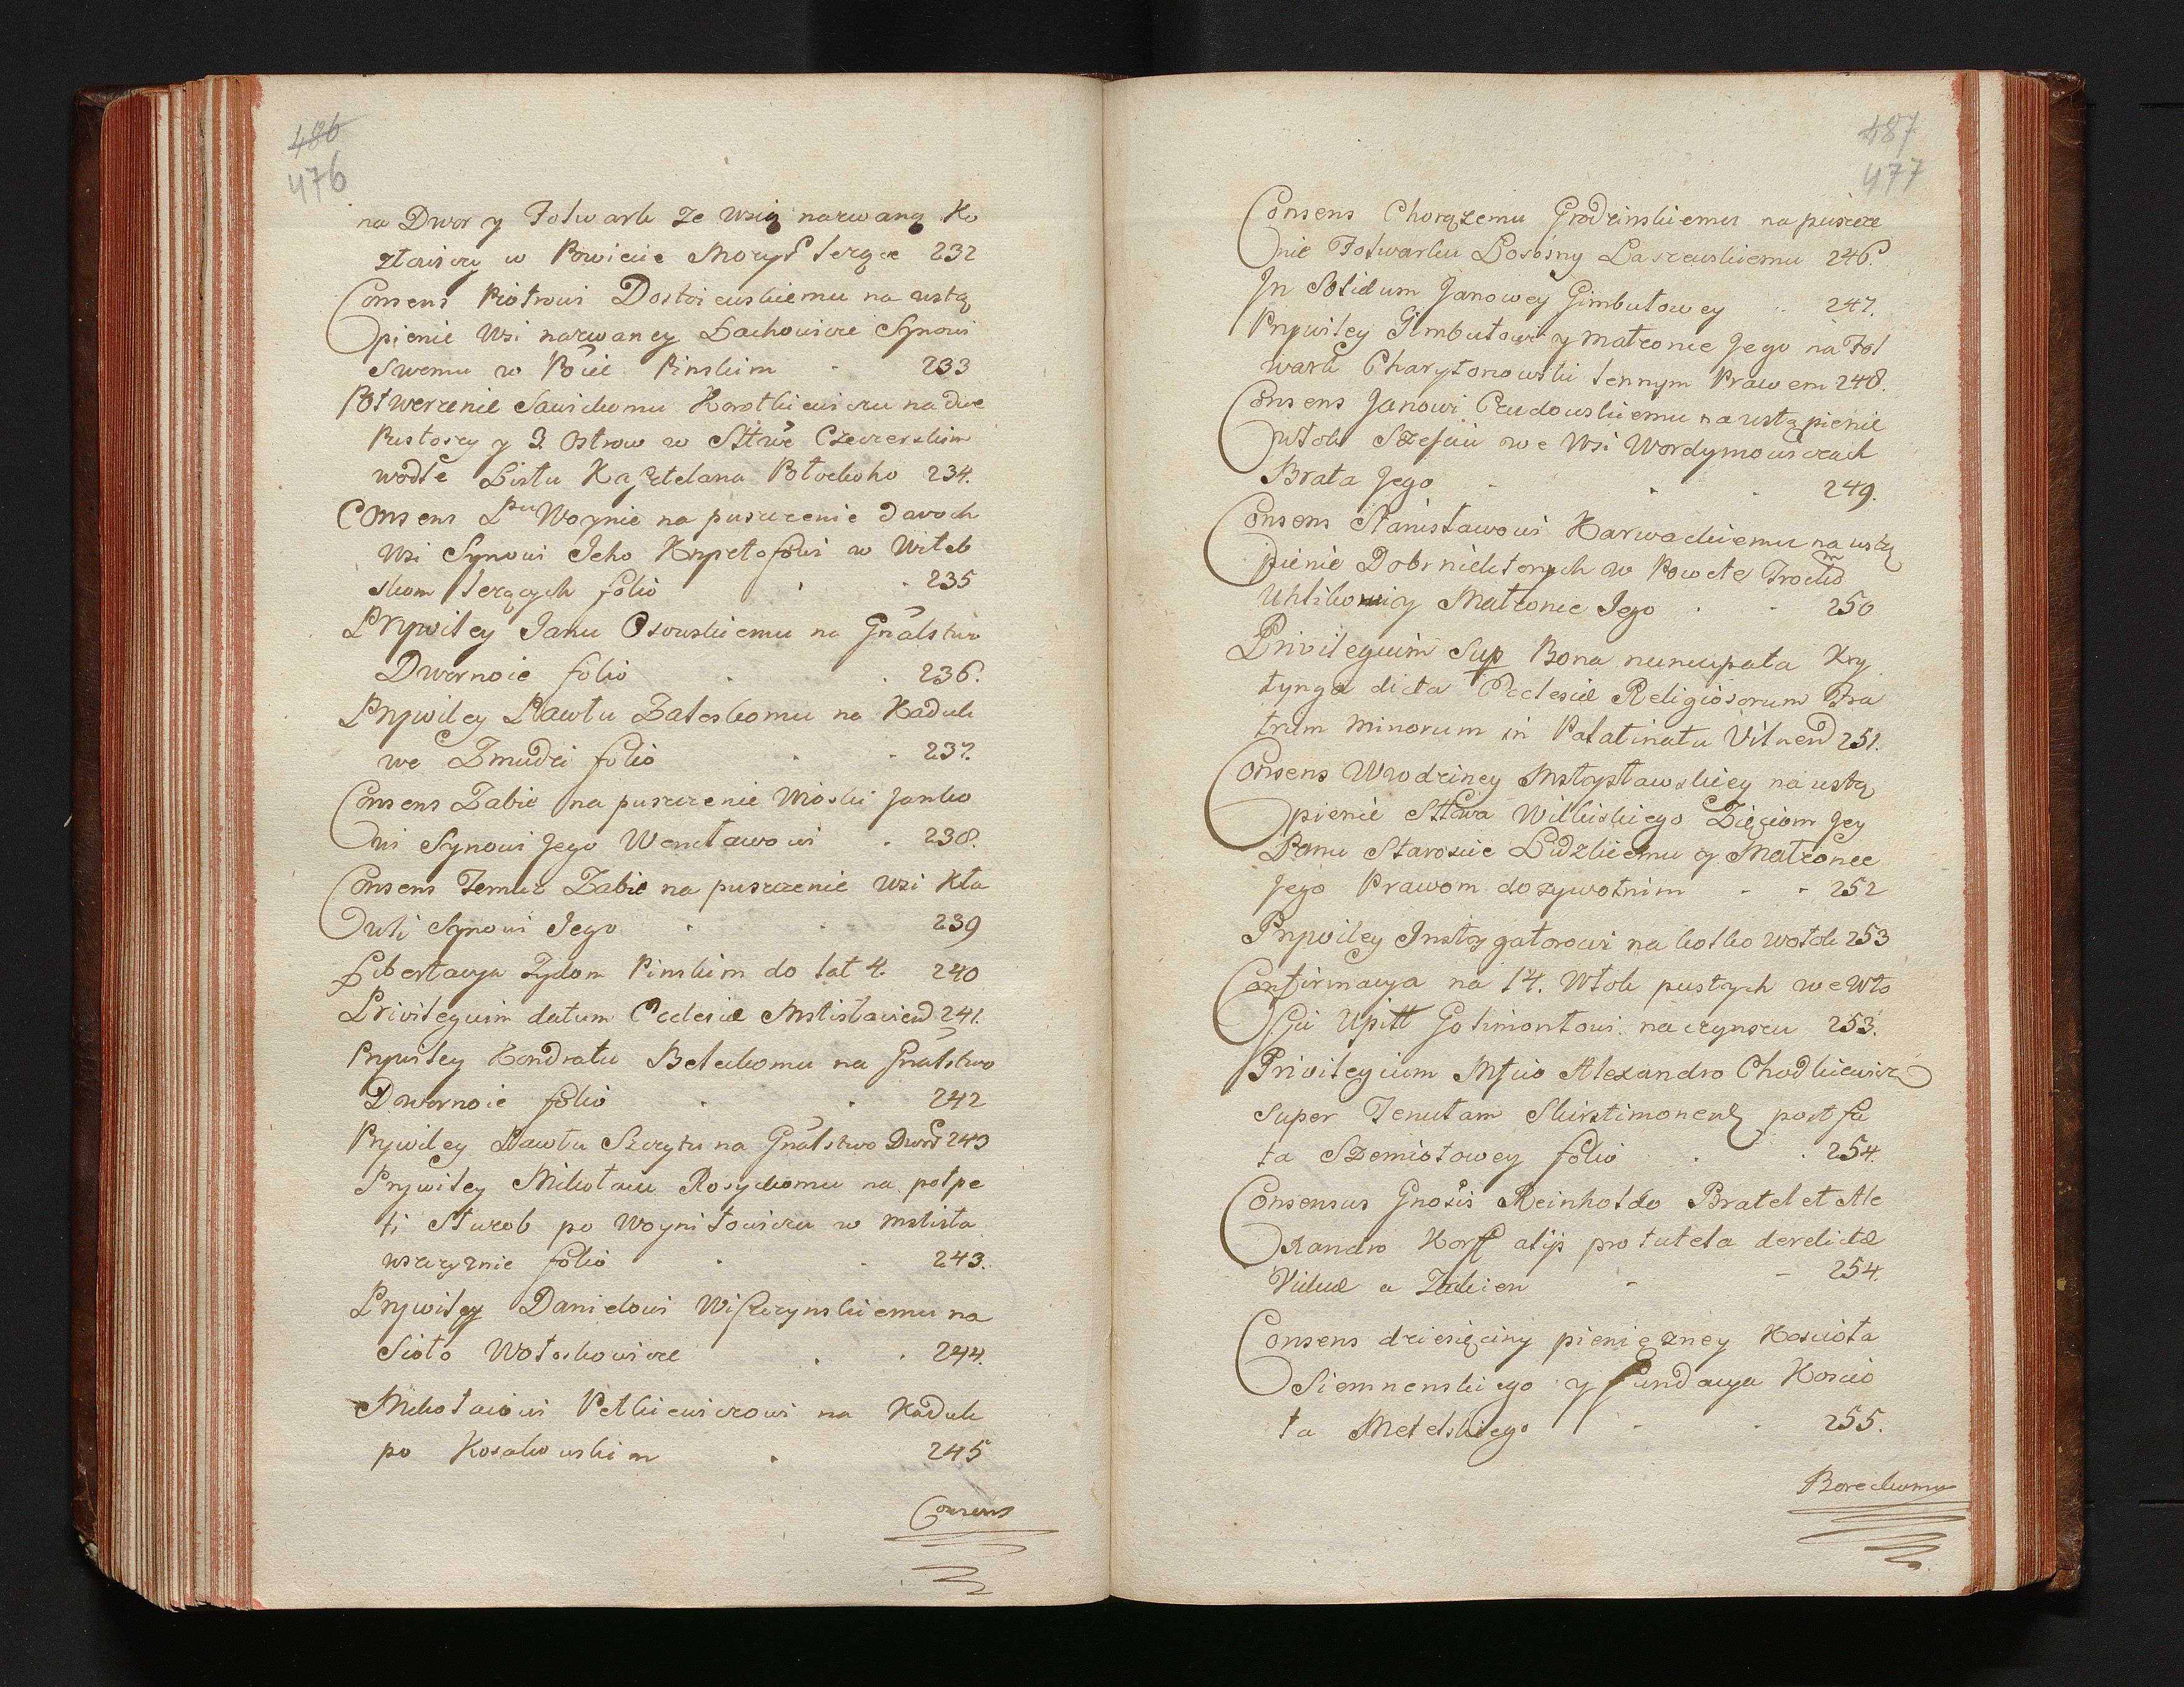 486
476
na Dwor y Folwark ze wsią nazwaną Ko
złowicy w Powiecie Mozyr leząće 232
Consens Piotrowi Dostoiewskiemu na ustą
pienie Wsi nazwaney Lachowicze Synowi
Swemu w Pocie Pinskim 233
Potwerzenie Sawickomu Kostkiewiczu na dwe
Pustoszy y 3. Ostrow w Sttwe Czeczerskim
wodłe Listu Kasztelana Połockoho 234.
Consens Woynie na puszczenie dwoch
Wsi Synowi Jeho Krysztofowi w Witeb
skom lezących folio 235
Prywiley Janu Osowskiemu na Gnalstwo
Dwornoie folio 236.
Prywiley Pawłu Zaleskomu na Kaduk
we Zmudzi folio 237.
Consens Zabie na puszczenie Wioski Janko
wi Synowi Jego Wencławowi 238.
Consens Temuz Zabie na puszczenie wsi Kła
wki Synowi Jego 239
Libertacya Zydom Pinskim do lat 4. 240
Privilegium datum Ecclesiæ Mstislavien 241.
Prywiley Kondratu Beleckomu na Gnalstwo
Dwornoie folio 242
Prywiley Pawłu Szczytu na Gnalstwo Dwor 243
Prywiley Mikołaiu Rosyckomu na połpe
ti Służob po Woyniłowiczu w Mstisła
wszczyznie folio 243.
Prywiley Danielowi Wiszczynskiemu na
Sioło Wołoskowicze 244.
Mikołaiowi Petkiewiczowi na Kaduk
po Kosakowskim 245
Consens
487
477
Consens Chorązemu Grodzinskiemu na puszcze
nie Folwarku Lososny Laszewskiemu 246.
In Solidum Janowey Gimbutowey 247.
Prywiley Gimbutowi y Małzonce Jego na Fol
wark Charytonowski lennym Prawem 248.
Consens Janowi Czudowskiemu na ustąpienie
włok Szesciu we Wsi Wordymowiczach
Brata Jego 249.
Consens Stanisławowi Karwackiemu na ustą
pienie Dobr niektorych w Powcte Trockim
Uhlikowicy Małzonce Jego 250
Privilegium Sup Bona nuncupata Kry
tynga dicta Ecclesiæ Religiosorum Fra
trum Minorum in Palatinatu Vilnen 251.
Consens Wwodziney Mstysławskiey na ustą
pienie Sttwa Wilkiskiego Zięciom Jey
Panu Staroscie Lidzkiemu y Małzonce
Jego Prawom dozywotnim 252
Prywiley Instygatorowi na kolko wołok 253
Confirmacya na 14. Włok pustych we Wło
sci Upitt Gotimontowi na czynszu 253.
Privilegium Mfico Alexandro Chodkiewicz
Super Tenutam Skirstimonen post fa
ta Szemiotowey folio 254.
Consensus Gnosis Reinholdo Bratel et Ale
xandro Korff alijs pro tutela derelictæ
Viduæ a Zabien 254.
Consens dziesięciny pienięzney Kosciola
Siemnenskiego y fundacya Koscio
ła Metelskiego 255.
Boreckomu